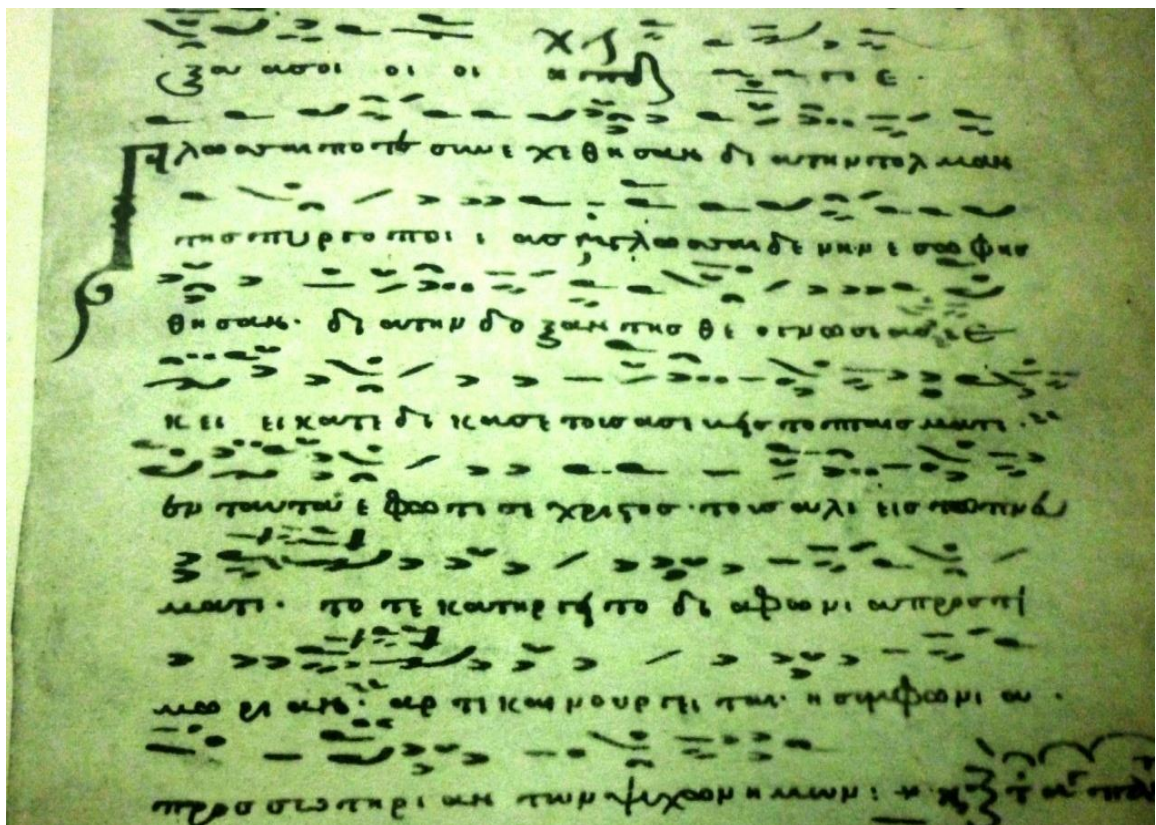 ξα α σοι οι οι
Γλωσσαι ποτε συνε χε θησαν δι α την τολ μαν
της πυργοποι ι ας γλωσσαι δε νυν ε σοφις
θησαν· δι α την δο ξαν της θε ογνωσιας ε
κει ει κατε δι κασε τοις ασε τω πταισματι·
εν ταυ ε φωτι σε χριστος· τοις αλι εις τω πνευ
ματι· το τε κατηργ το δι αφωνι α προς τι
μω ρι αν· αρ τι καινουργει ται· η συμφωνι α·
προς σωτηρι αν των ψυχων ημων: